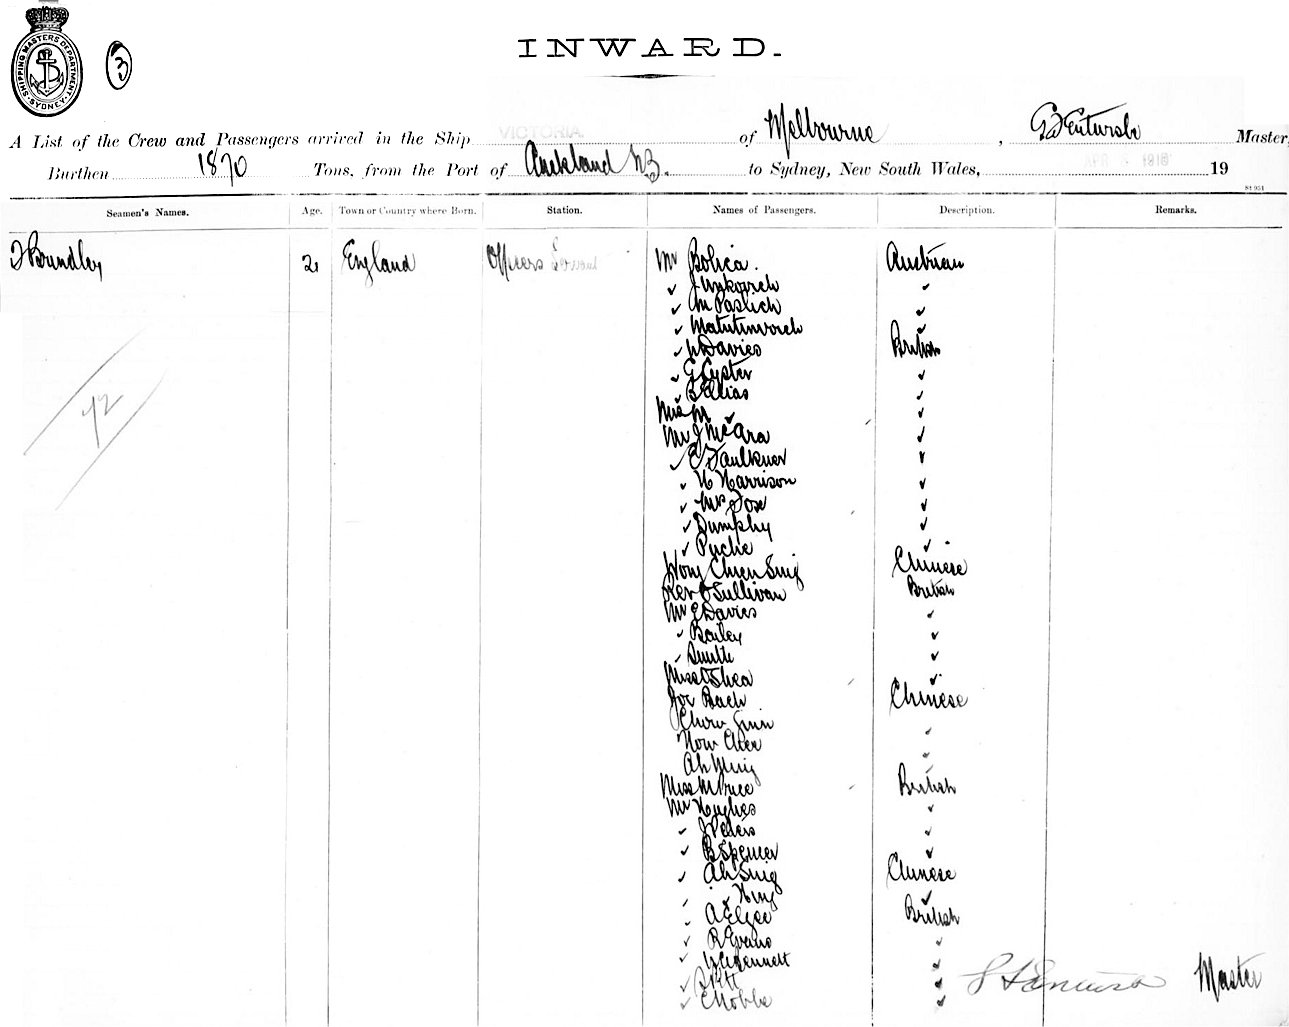 SHIPPING MASTERS DEPARTMENT SYDNEY
3
INWARD.
A List of the Crew and Passengers arrived in the Ship VICTORIA of Melbourne, Master,
Burthen 1870 Tons, from the Port of Auckland NZ. to Sydney, New South Wales, APR 1910 19
Seamen's Names. Age. Town or Country where Born. Station. Names of Passengers. Description. Remarks.
Brundley 21 England Officers Servant Mr Bolica. Austrian
✓ ✓
✓ M Paslich ✓
✓ ✓
✓ Davies British
✓ G Eyster ✓
✓ B Elias ✓
Miss M ✓ ✓
Mr J McAra ✓
✓ E Faulkner ✓
✓ H Harrison ✓
✓ Mrs Jose ✓
✓ Dumphy ✓
✓ Puche ✓
Wong Chun Sing Chinese
Rev O'Sullivan British
Mr G Davies ✓
✓ Bailey ✓
✓ Smith ✓
Miss O'Shea ✓
Joe Bach Chinese
Chow
How ✓
Ah Ming ✓
Miss M Price British
Mr Hughes ✓
✓ J Peters ✓
✓ B Spencer ✓
✓ Ah Sing Chinese
✓ King ✓
✓ A E Gee British
✓ R Evans ✓
✓ Bennett ✓
✓ Pitt ✓
✓ C Nobbe ✓
Master
72